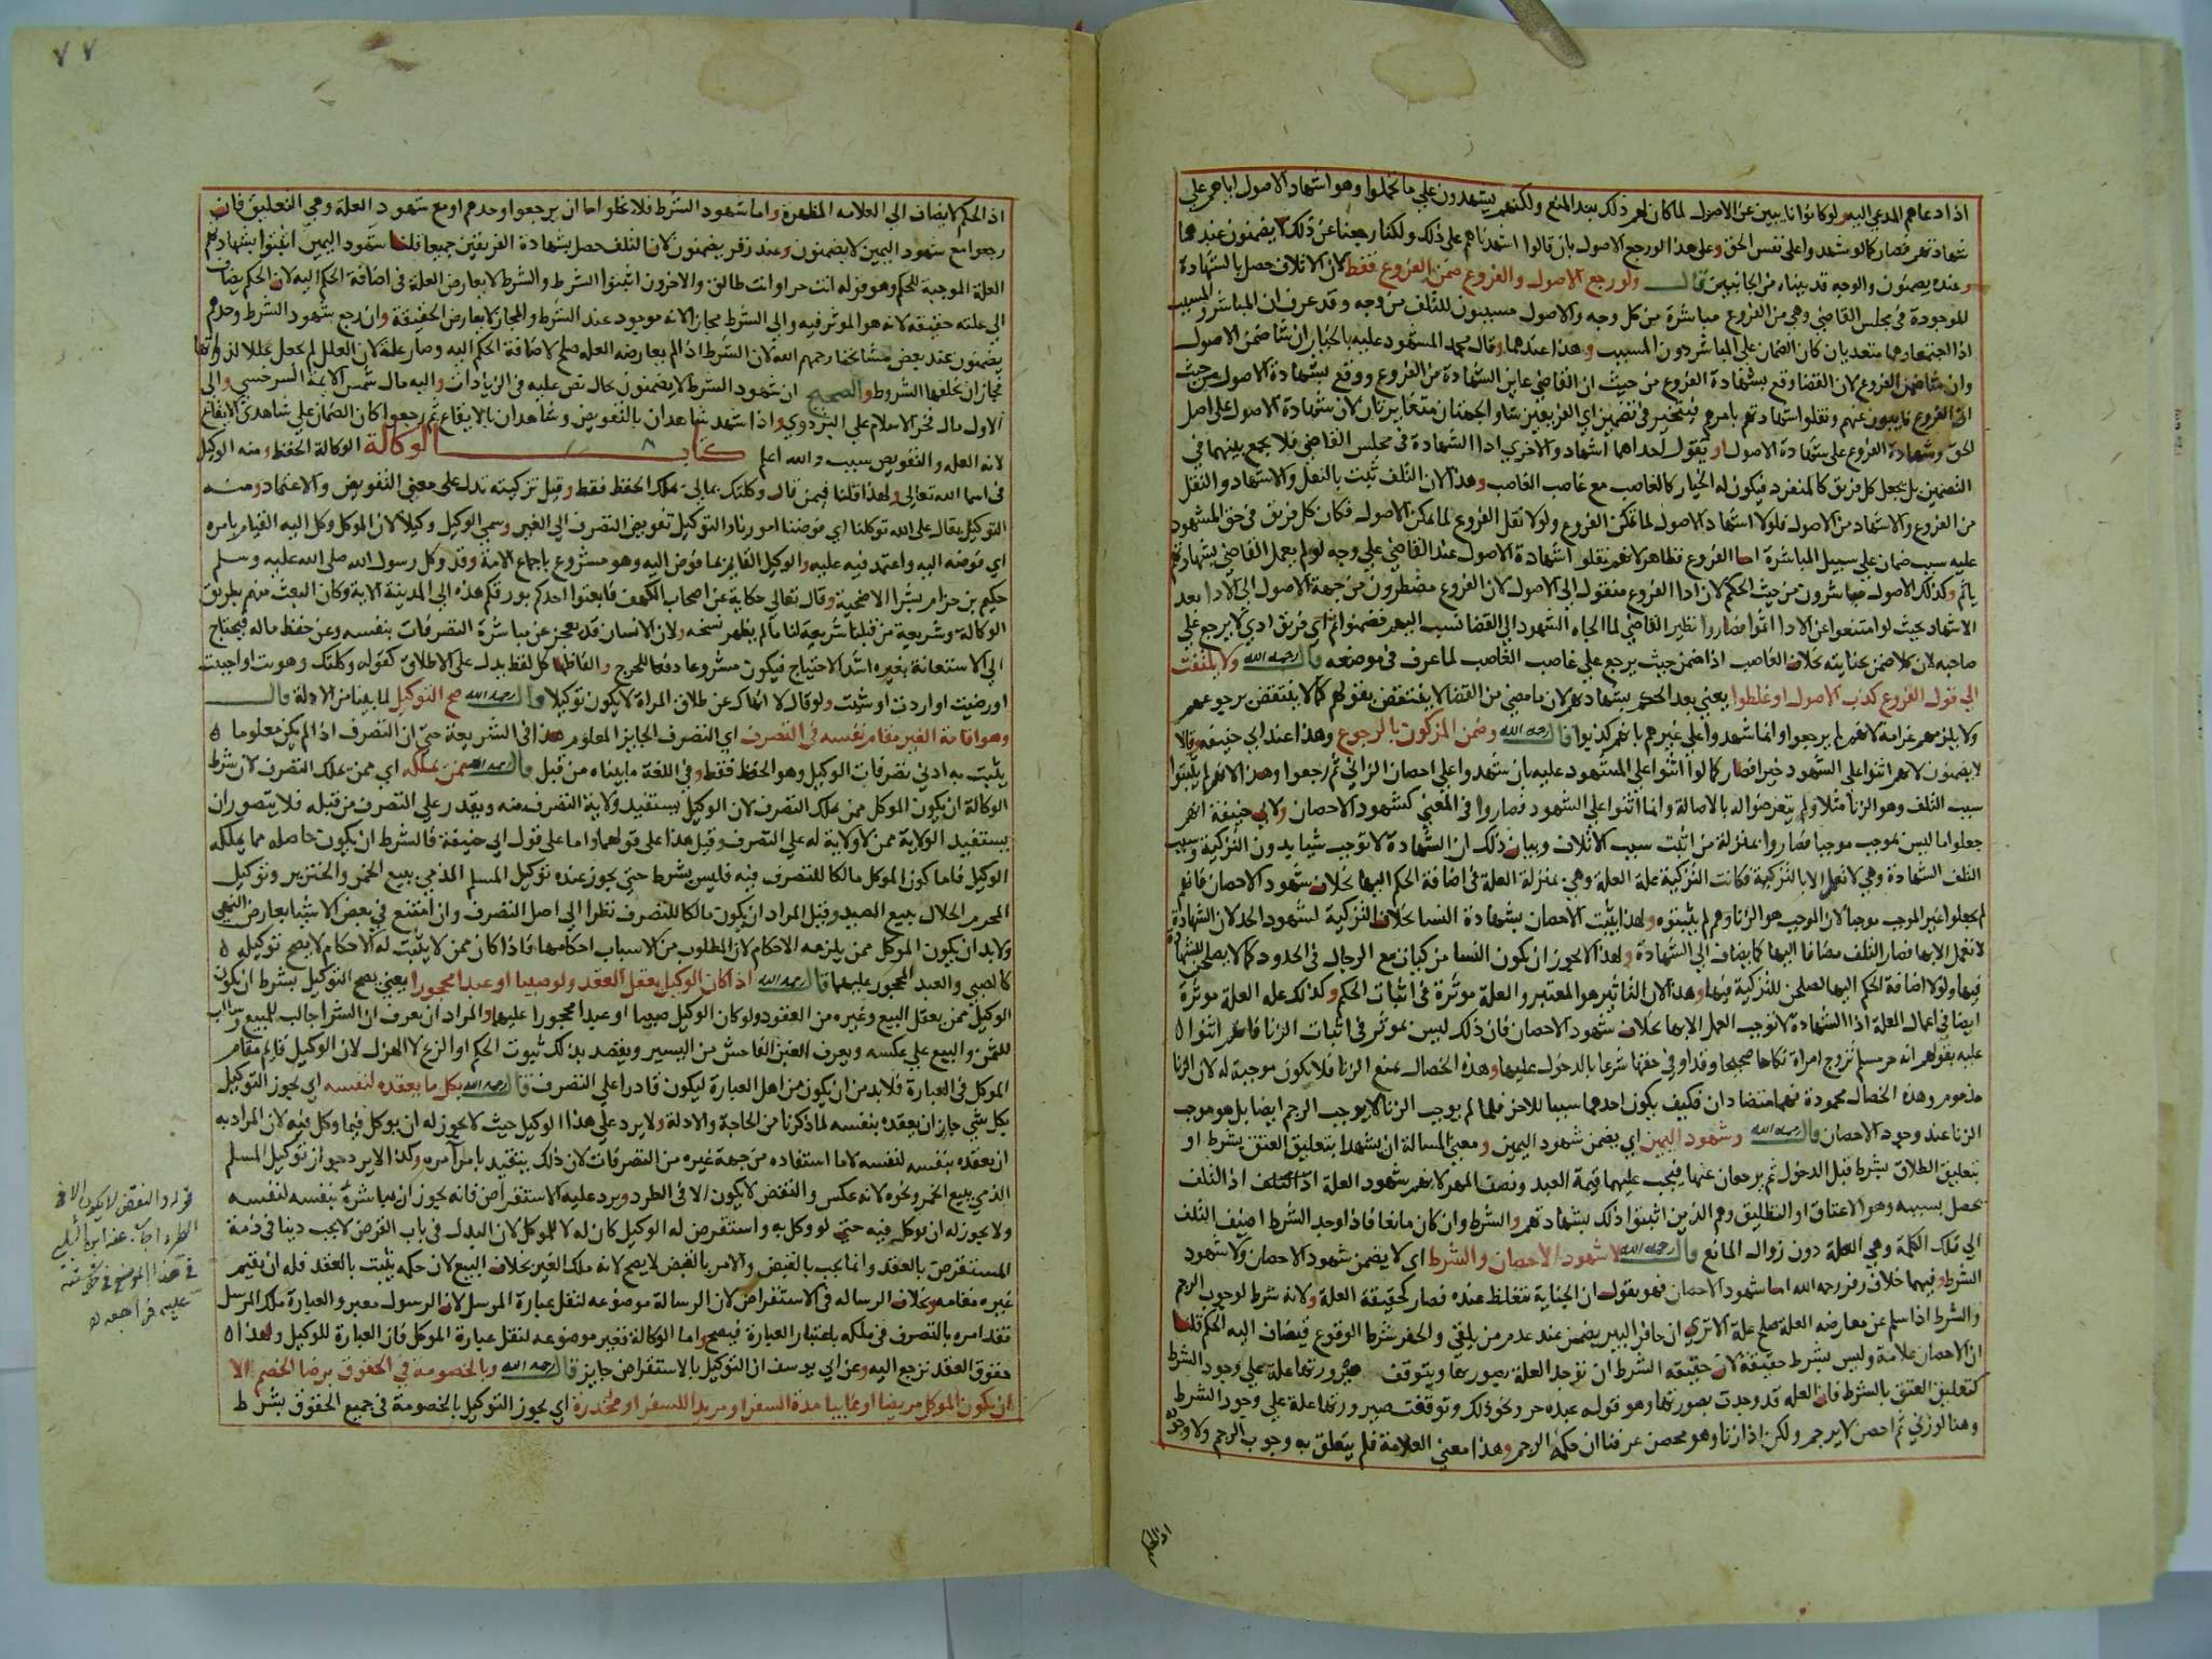 اذا دعاهم المدعي اليه ولو كانوا نايبين عن الاصول لما كان لهم ذلك بعد المنع ولكنهم يشهدون علي ما تحملوا وهو اشهاد الاصول اياهم علي
شهادتهم فصار كما لو شهدوا علي نفس الحق وعلي هذا لو رجع الاصول بان قالوا اشهدناهم علي ذلك ولكنا رجعنا عن ذلك لا يضمنون عندهما
وعنده يضمنون والوجه قد بيناه من الجانبين قال ولو رجع الاصول والفروع ضمن الفروع فقط لان الاتلاف حصل بالشهادة
الموجودة في مجلس القاضي وهي من الفروع مباشرة من كل وجه والاصول مسببون للتلف من وجه وقد عرف ان المباشر والمسبب
اذا اجتمعا وهما متعديان كان الضمان علي المباشر دون المسبب وهذا عندهما وقال محمد المشهود عليه بالخيار ان شا ضمن الاصول
وان شا ضمن الفروع لان القضا وقع بشهادة الفروع من حيث ان القاضي عاين الشهادة من الفروع ووقع بشهادة الاصول من حيث
ان الفروع نايبون عنهم ونقلوا شهادتهم بامرهم فيتخير في تضمين اي الفريقين شا والجهتان متغايرتان لان شهادة الاصول علي اصل
الحق وشهادة الفروع علي شهادة الاصول او يقول احداهما اشهاد والاخري ادا الشهادة في مجلس القاضي فلا يجمع بينهما في
التضمين بل يجعل كل فريق كالمنفرد فيكون له الخيار كالغاصب مع غاصب الغاصب وهذا لان التلف ثبت بالنقل والاشهاد والنقل
من الفروع والاشهاد من الاصول فلولا اشهاد الاصول لما تمكن الفروع ولولا نقل الفروع لما تمكن الاصول فكان كل فريق في حق المشهود
عليه سبب ضمان علي سبيل المباشرة اما الفروع فظاهر لانهم نقلوا شهادة الاصول عند القاضي علي وجه لو لم يعمل القاضي بشهادتهم
ياثم وكذلك الاصول مباشرون من حيث الحكم لان ادا الفروع منقول الي الاصول لان الفروع مضطرون من جهة الاصول الي الادا بعد
الاشهاد بحيث لو امتنعوا عن الادا اثموا فصاروا نظير القاضي لما الجاه الشهود الي القضا نسب اليهم فضمنوا ثم اي فريق ادي لا يرجع علي
صاحبه لان كلا ضمن بجنايته بخلاف الغاصب اذا ضمن حيث يرجع علي غاصب الغاصب لما عرف في موضعه قال رحمه الله ولا يلتفت
الي قول الفروع كذب الاصول او غلطوا يعني بعد الحكم بشهادتهم لان ما مضي من القضا لا ينتقض بقولهم كما لا ينتقض برجوعهم
ولا يلزمهم غرامة لانهم لم يرجعوا وانما شهدوا علي غيرهم بانهم كذبوا قال رحمه الله وضمن المزكون بالرجوع وهذا عند ابي حنيفة وقالا
لا يضمنون لانهم اثنوا علي الشهود خيرا فصار كما لو اثنوا علي المشهود عليه بان شهدوا علي احصان الزاني ثم رجعوا وهذا لانهم لم يثبتوا
سبب التلف وهو الزنا مثلا ولم يتعرضوا له بالاصالة وانما اثنوا علي الشهود فصاروا في المعني كشهود الاحصان ولابي حنيفة انهم
جعلوا ما ليس بموجب موجبا فصاروا بمنزلة من اثبت سبب الاتلاف وبيان ذلك ان الشهادة لا توجب شيا بدون التزكية وسبب
التلف الشهادة وهي لا تعمل الا بالتزكية فكانت التزكية علة العلة وهي بمنزلة العلة في اضافة الحكم اليها بخلاف شهود الاحصان فانهم
لم يجعلوا غير الموجب موجبا لان الموجب هو الزنا وهم لم يثبتوه ولهذا يثبت الاحصان بشهادة النسا بخلاف التزكية لشهود الحد لان الشهادة
لا تعمل الا بها فصار التلف مضافا اليها كما يضاف الي الشهادة ولهذا لا يجوز ان يكون النسا مزكيات مع الرجال في الحدود كما لا يصلحن للشهادة
فيها ولولا اضافة الحكم اليها لصلحن للتزكية فيها وهذا لان التاثير هو المعتبر والعلة موثرة في اثبات الحكم وكذلك علة العلة موثرة
ايضا في اعمال العلة اذ الشهادة لا توجب العمل الا بها بخلاف شهود الاحصان فان ذلك ليس بموثر في اثبات الزنا فانهم اثنوا
عليه بقولهم انه حر مسلم تزوج امراة نكاحا صحيحا وقد اوفي حقها شرعا بالدخول عليها وهذه الخصال تمنع الزنا فلا يكون موجبة له لان الزنا
مذموم وهذه الخصال محمودة فهما متضادان فكيف يكون احدهما سببا للاخر فلما لم يوجب الزنا لا يوجب الرجم ايضا بل هو موجب
الزنا عند وجود الاحصان قال رحمه الله وشهود اليمين اي يضمن شهود اليمين ومعني المسالة ان يشهدا بتعليق العتق بشرط او
بتعليق الطلاق بشرط قبل الدخول ثم يرجعان عنها فيجب عليهما قيمة العبد ونصف المهر لانهم شهود العلة اذ التلف
يحصل بسببه وهو الاعتاق او التطليق وهم الذين اثبتوا ذلك بشهادتهم والشرط وان كان مانعا فاذا وجد الشرط اضيف التلف
الي تلك الكلمة وهي العلة دون زوال المانع قال رحمه الله لا شهود الاحصان والشرط اي لا يضمن شهود الاحصان ولا شهود
الشرط وفيهما خلاف زفر رحمه الله اما شهود الاحصان فهو يقول ان الجناية تتغلظ عنده فصار كحقيقة العلة ولانه شرط لوجوب الرجم
والشرط اذا سلم عن معارضة العلة صلح علة الا تري ان حافر البير يضمن عند عدم من يلقي والحفر شرط الوقوع فيضاف اليه الحكم قلنا
ان الاحصان علامة وليس بشرط حقيقة لان حقيقة الشرط ان توجد العلة بصورتها ويتوقف صيرورتها علة علي وجود الشرط
كتعليق العتق بالشرط فان العلة قد وجدت بصورتها وهو قوله عبده حر ونحو ذلك وتوقفت صيرورتها علة علي وجود الشرط
وهنا لو زني ثم احصن لا يرجم ولكن اذا زنا وهو محصن عرفنا ان حكمه الرجم وهذا معني العلامة فلم يتعلق به وجوب الرجم ولا وجوده
اذ الحكم
٧٧
اذ الحكم لا يضاف الي العلامة المظهرة واما شهود الشرط فلا يخلوا اما ان يرجعوا وحدهم او مع شهود العلة وهي التعليق فان
رجعوا مع شهود اليمين لا يضمنون وعند زفر يضمنون لان التلف حصل بشهادة الفريقين جميعا قلنا شهود اليمين اثبتوا بشهادتهم
العلة الموجبة للحكم وهو قوله انت حر او انت طالق والاخرون اثبتوا الشرط والشرط لا يعارض العلة في اضافة الحكم اليه لان الحكم يضاف
الي علته حقيقة لانه هو الموثر فيه والي الشرط مجازا لانه موجود عند الشرط والمجاز لا يعارض الحقيقة وان رجع شهود الشرط وحدهم
يضمنون عند بعض مشايخنا رحمهم الله لان الشرط اذا لم يعارضه العلة صلح لاضافة الحكم اليه وصار علة لان العلل لم تجعل عللا لذواتها
فجاز ان يخلفها الشروط والصحيح ان شهود الشرط لا يضمنون بحال نص عليه في الزيادات واليه مال شمس الائمة السرخسي والي
الاول مال فخر الاسلام علي البزدوي واذا شهد شاهدان بالتفويض وشاهدان بالايقاع ثم رجعوا كان الضمان علي شاهدي الايقاع
لانه العلة والتفويض سبب والله اعلم كتاب الوكالة الوكالة الحفظ ومنه الوكيل
في اسما الله تعالي ولهذا قلنا فيمن قال وكلتك بمالي يملك الحفظ فقط وقيل تركيبه يدل علي معني التفويض والاعتماد ومنه
التوكيل يقال علي الله توكلنا اي فوضنا امورنا والتوكيل تفويض التصرف الي الغير وسمي الوكيل وكيلا لان الموكل وكل اليه القيام بامره
اي فوضه اليه واعتمد فيه عليه والوكيل القايم بما فوض اليه وهو مشروع باجماع الامة وقد وكل رسول الله صلي الله عليه وسلم
حكيم بن حزام بشرا الاضحية وقال تعالي حكاية عن اصحاب الكهف فابعثوا احدكم بورقكم هذه الي المدينة الاية وكان البعث منهم بطريق
الوكالة وشريعة من قبلنا شريعة لنا ما لم يظهر نسخه ولان الانسان قد يعجز عن مباشرة التصرفات بنفسه وعن حفظ ماله فيحتاج
الي الاستعانة بغيره اشد الاحتياج فيكون مشروعا دفعا للحرج والفاظها كل لفظ يدل علي الاطلاق كقوله وكلتك وهويت او احببت
او رضيت او اردت او شيت ولو قال لا انهاك عن طلاق المراة لا يكون توكيلا قال رحمه الله صح التوكيل لما بينا من الادلة قال
وهو اقامة الغير مقام نفسه في التصرف اي التصرف الجايز المعلوم هذا في الشريعة حتي ان التصرف اذا لم يكن معلوما
يثبت به ادني تصرفات الوكيل وهو الحفظ فقط وفي اللغة ما بيناه من قبل قال رحمه الله ممن يملكه اي ممن يملك التصرف لان شرط
الوكالة ان يكون الموكل ممن يملك التصرف لان الوكيل يستفيد ولاية التصرف منه ويقدر علي التصرف من قبله فلا يتصور ان
يستفيد الولاية ممن لا ولاية له علي التصرف وقيل هذا علي قولهما واما علي قول ابي حنيفة فالشرط ان يكون حاصله مما يملكه
الوكيل فاما كون الموكل مالكا للتصرف فيه فليس بشرط حتي يجوز عنده توكيل المسلم الذمي ببيع الخمر والخنزير وتوكيل
المحرم الحلال ببيع الصيد وقيل المراد ان يكون مالكا للتصرف نظرا الي اصل التصرف وان امتنع في بعض الاشيا بعارض النهي
ولا بد ان يكون الموكل ممن يلزمه الاحكام لان المطلوب من الاسباب احكامها فاذا كان ممن لا يثبت له الاحكام لا يصح توكيله
كالصبي والعبد المحجور عليهما قال رحمه الله اذا كان الوكيل يعقل العقد ولو صبيا او عبدا محجورا يعني يصح التوكيل بشرط ان يكون
الوكيل ممن يعقل البيع وغيره من العقود ولو كان الوكيل صبيا او عبدا محجورا عليهما والمراد ان يعرف ان الشرا جالب للمبيع وسالب
للثمن والبيع علي عكسه ويعرف الغبن الفاحش من اليسير ويقصد بذلك ثبوت الحكم او الربح لا الهزل لان الوكيل قايم مقام
الموكل في العبارة فلا بد من ان يكون من اهل العبارة ليكون قادرا علي التصرف قال رحمه الله بكل ما يعقده لنفسه اي يجوز التوكيل
بكل شي جاز ان يعقده بنفسه لما ذكرنا من الحاجة والادلة ولا يرد علي هذا الوكيل حيث لا يجوز له ان يوكل فيما وكل فيه لان المراد به
ان يعقده بنفسه لنفسه لا ما استفاده من جهة غيره من التصرفات لان ذلك يتقيد بامر آمره وكذا لا يرد جواز توكيل المسلم
الذمي ببيع الخمر ونحوه لانه عكس والنقض لا يكون الا في الطرد ويرد عليه الاستقراض فانه يجوز ان يباشره بنفسه لنفسه
ولا يجوز له ان يوكل فيه حتي لو وكل به واستقرض له الوكيل كان له لا للموكل لان البدل في باب القرض لا يجب دينا في ذمة
المستقرض بالعقد وانما يجب بالقبض والامر بالقبض لا يصح لانه ملك الغير بخلاف البيع لان حكمه يثبت بالعقد فله ان يقيم
غيره مقامه وبخلاف الرسالة في الاستقراض لان الرسالة موضوعة لنقل عبارة المرسل لان الرسول معبر والعبارة ملك المرسل
فقد امره بالتصرف في ملكه باعتبار العبارة فيصح واما الوكالة فغير موضوعة لنقل عبارة الموكل فان العبارة للوكيل ولهذا
حقوق العقد ترجع اليه وعن ابي يوسف ان التوكيل بالاستقراض جايز قال رحمه الله وبالخصومة في الحقوق برضا الخصم الا
ان يكون الموكل مريضا او غايبا مدة السفر او مريدا للسفر او مخدرة اي يجوز التوكيل بالخصومة في جميع الحقوق بشرط
قوله والنقض لا يكون الا في
الطرد اجاب عنه ابن الشلبي
في هذا الموضع في حاشيته
عليه فراجعه